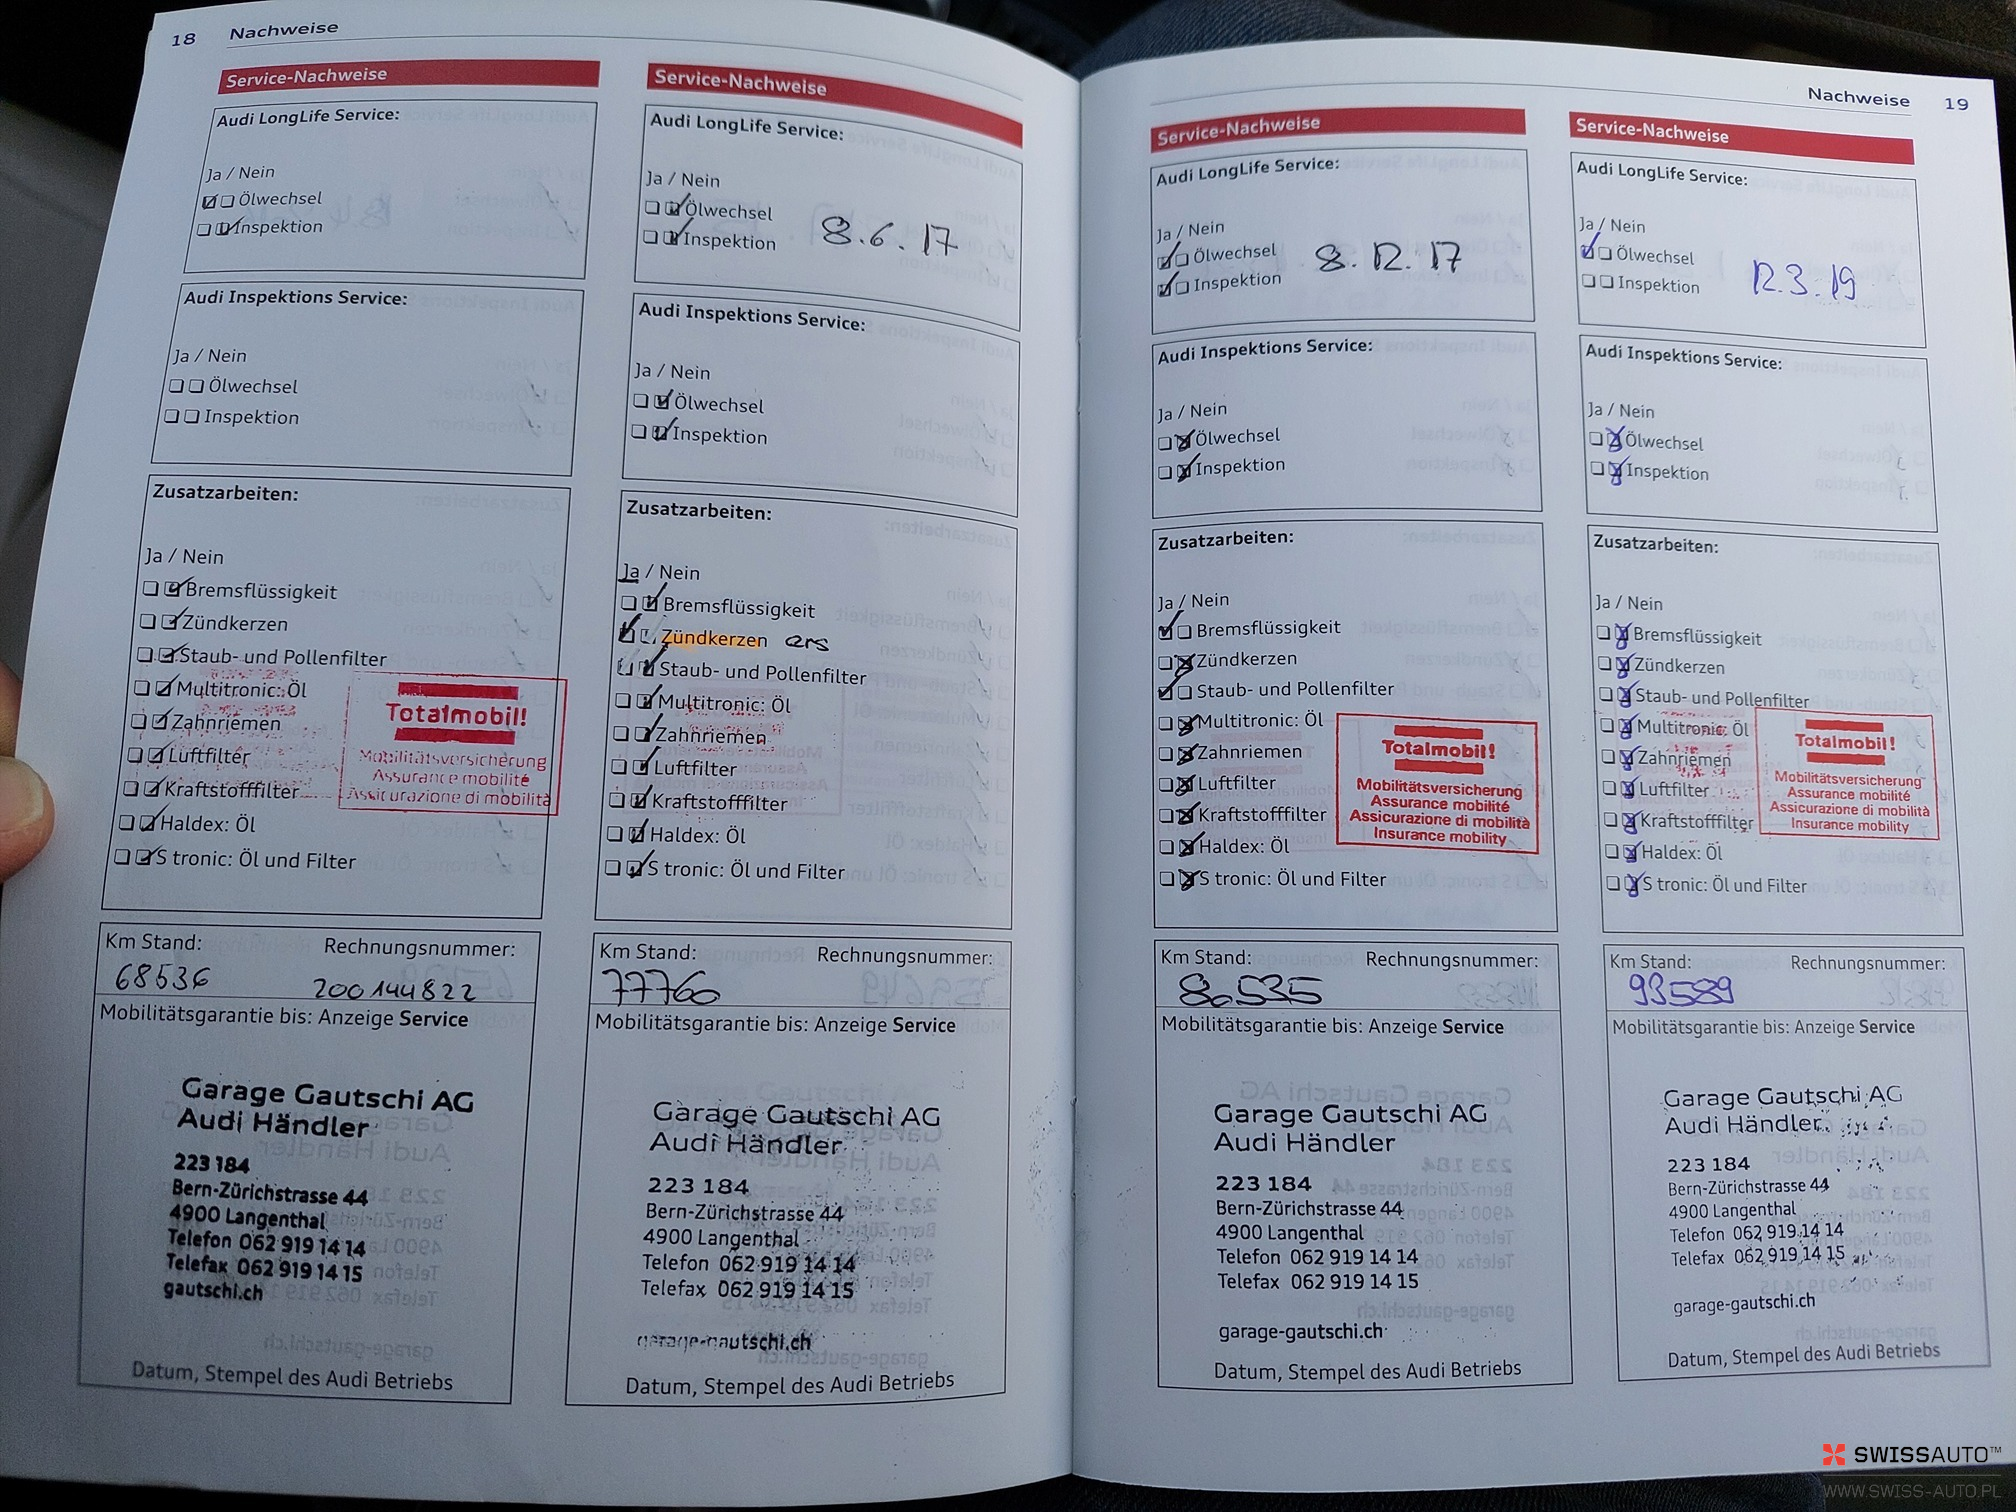 18 Nachweise
Service-Nachweise
Audi LongLife Service:
Ja / Nein
Ölwechsel
Inspektion
Audi Inspektions Service:
Ja / Nein
Ölwechsel
Inspektion
Zusatzarbeiten:
Ja / Nein
Bremsflüssigkeit
Zündkerzen
Staub- und Pollenfilter
Multitronic: Öl
Zahnriemen
Luftfilter
Kraftstofffilter
Haldex: Öl
S tronic: Öl und Filter
Totalmobil!
Mobilitätsversicherung
Assurance mobilité
Assicurazione di mobilità
Km Stand: Rechnungsnummer:
68536 200144822
Mobilitätsgarantie bis: Anzeige Service
Garage Gautschi AG
Audi Händler
223 184
Bern-Zürichstrasse 44
4900 Langenthal
Telefon 062 919 14 14
Telefax 062 919 14 15
gautschi.ch
Datum, Stempel des Audi Betriebs
Service-Nachweise
Audi LongLife Service:
Ja / Nein
Ölwechsel
Inspektion
8.6.17
Audi Inspektions Service:
Ja / Nein
Ölwechsel
Inspektion
Zusatzarbeiten:
Ja / Nein
Bremsflüssigkeit
Zündkerzen ers
Staub- und Pollenfilter
Multitronic: Öl
Zahnriemen
Luftfilter
Kraftstofffilter
Haldex: Öl
S tronic: Öl und Filter
Km Stand: Rechnungsnummer:
77760
Mobilitätsgarantie bis: Anzeige Service
Garage Gautschi AG
Audi Händler
223 184
Bern-Zürichstrasse 44
4900 Langenthal
Telefon 062 919 14 14
Telefax 062 919 14 15
garage-gautschi.ch
Datum, Stempel des Audi Betriebs
Nachweise 19
Service-Nachweise
Audi LongLife Service:
Ja / Nein
Ölwechsel
Inspektion
8.12.17
Audi Inspektions Service:
Ja / Nein
Ölwechsel
Inspektion
Zusatzarbeiten:
Ja / Nein
Bremsflüssigkeit
Zündkerzen
Staub- und Pollenfilter
Multitronic: Öl
Zahnriemen
Luftfilter
Kraftstofffilter
Haldex: Öl
S tronic: Öl und Filter
Totalmobil!
Mobilitätsversicherung
Assurance mobilité
Assicurazione di mobilità
Insurance mobility
Km Stand: Rechnungsnummer:
80535
Mobilitätsgarantie bis: Anzeige Service
Garage Gautschi AG
Audi Händler
223 184
Bern-Zürichstrasse 44
4900 Langenthal
Telefon 062 919 14 14
Telefax 062 919 14 15
garage-gautschi.ch
Datum, Stempel des Audi Betriebs
Service-Nachweise
Audi LongLife Service:
Ja / Nein
Ölwechsel
Inspektion
12.3.19
Audi Inspektions Service:
Ja / Nein
Ölwechsel
Inspektion
Zusatzarbeiten:
Ja / Nein
Bremsflüssigkeit
Zündkerzen
Staub- und Pollenfilter
Multitronic: Öl
Zahnriemen
Luftfilter
Kraftstofffilter
Haldex: Öl
S tronic: Öl und Filter
Totalmobil!
Mobilitätsversicherung
Assurance mobilité
Assicurazione di mobilità
Insurance mobility
Km Stand: Rechnungsnummer:
93589
Mobilitätsgarantie bis: Anzeige Service
Garage Gautschi AG
Audi Händler
223 184
Bern-Zürichstrasse 44
4900 Langenthal
Telefon 062 919 14 14
Telefax 062 919 14 15
garage-gautschi.ch
Datum, Stempel des Audi Betriebs
SWISSAUTO™
WWW.SWISS-AUTO.PL